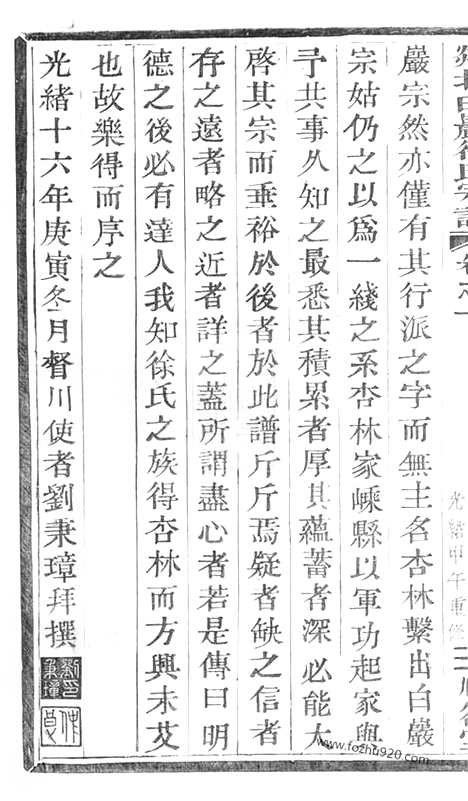 嚴宗然亦僅有其行派之字而無主名杏林繫出白嚴
宗姑仍之以爲一綫之系杏林家嵊縣以軍功起家與
予共事久知之最悉其積累者厚其蘊蓄者深必能大
啓其宗而垂裕於後者於此譜斤斤焉疑者缺之信者
存之遠者略之近者詳之蓋所謂盡心者若是傳曰明
德之後必有達人我知徐氏之族得杏林而方興未艾
也故樂得而序之
光緒十六年庚寅冬月督川使者劉秉璋拜撰
光緒甲午重修
www.fozhu920.com